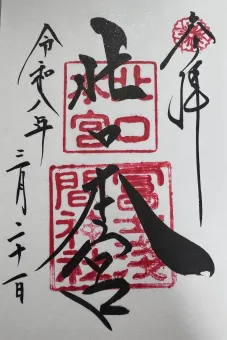 奉拝
北口本宮
北口
本宮
冨士浅
間神社
令和八年三月二十一日